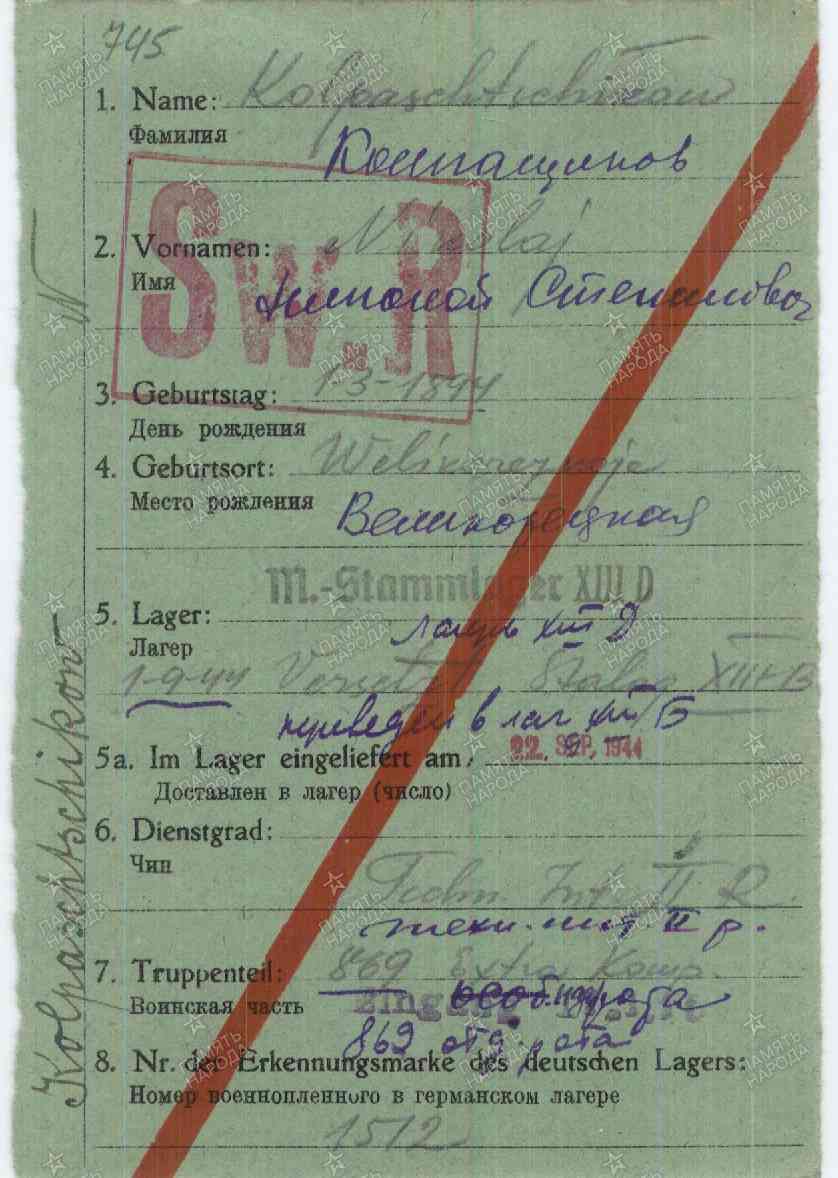 745
1. Name: Kolpaschtschikow
Фамилия
Колпащиков
2. Vornamen: Nikolaj
Имя
Sw.R
Николай Степанович
3. Geburtstag: 1-3-1894
День рождения
4. Geburtsort:
Место рождения
M.-Stammlager XIII D
5. Lager: лагерь XIII D
Лагерь
1-9-44 Versetzt Stalag XIII-B
переведен в лаг XIII Б
5a. Im Lager eingeliefert am: 22. SEP. 1944
Доставлен в лагер (число)
6. Dienstgrad:
Чин
Techn. Int. II R.
техн. инт. II р.
7. Truppenteil: 869 Extra Komp.
Воинская часть
Eingang особ. рота
869 отд. рота
8. Nr. der Erkennungsmarke des deutschen Lagers:
Номер военнопленного в германском лагере
1512
Kolpaschtschikow N
ПАМЯТЬ НАРОДА